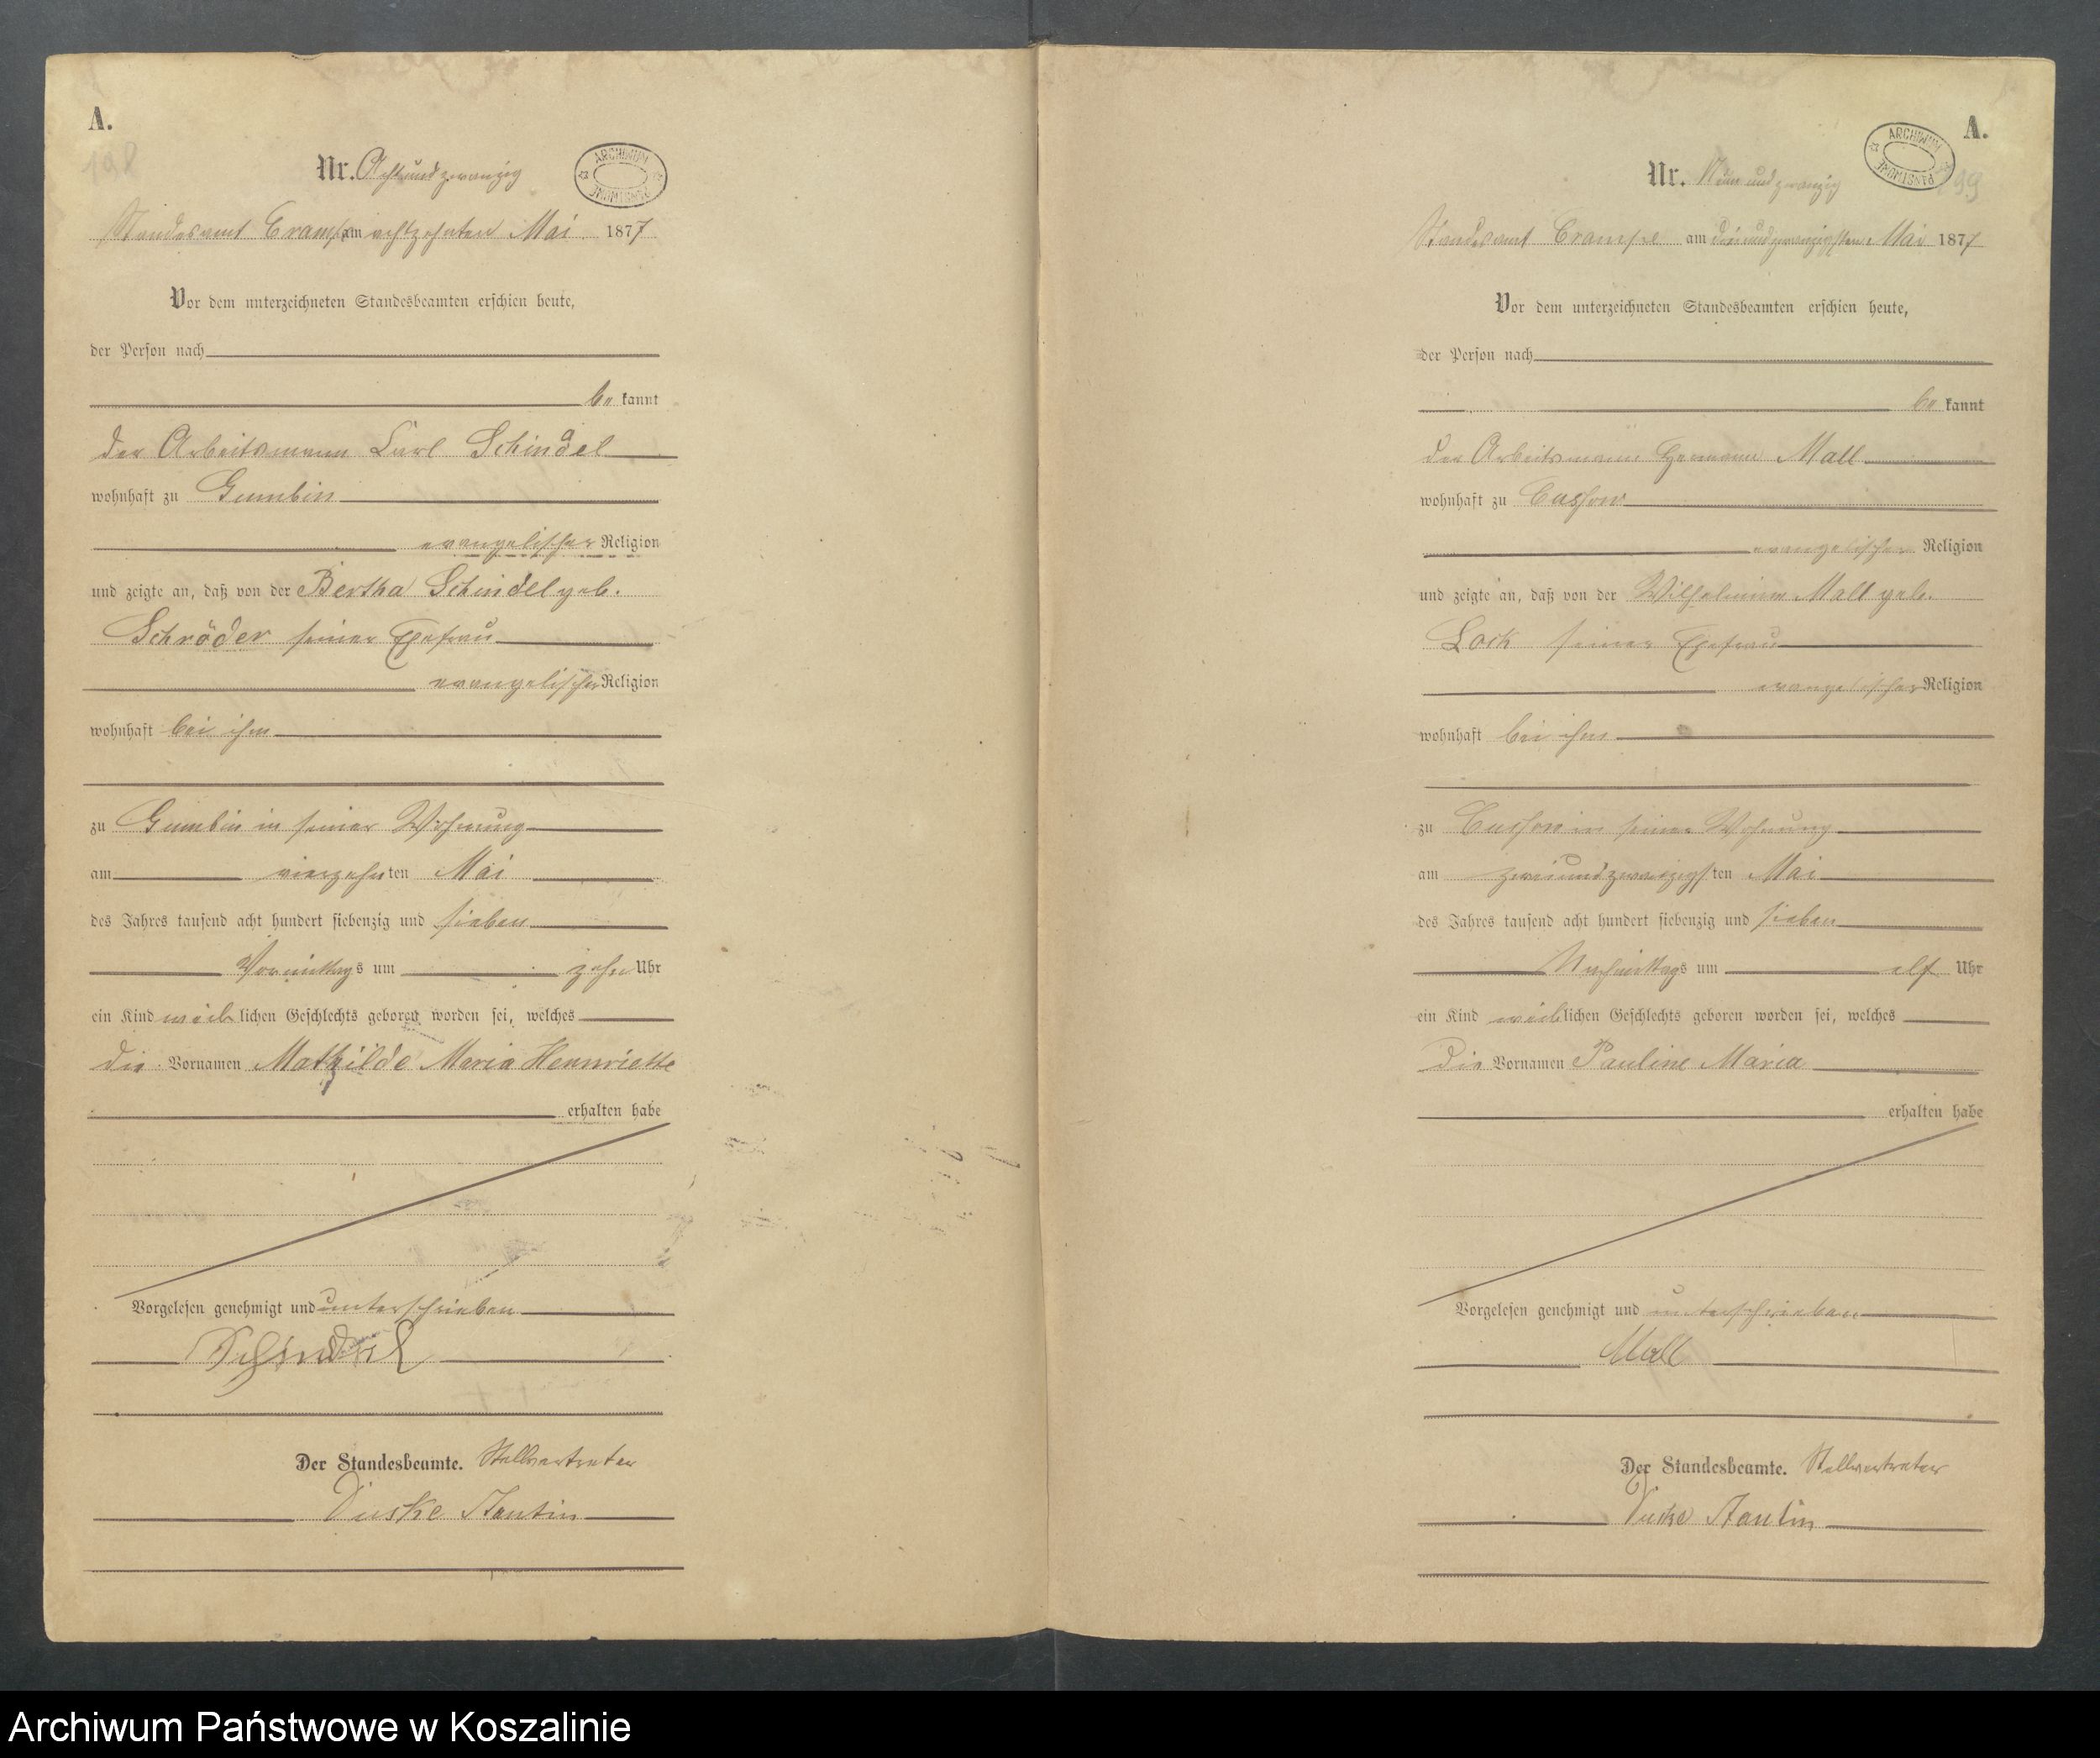 A.
198
Nr. Achtundzwanzig
ARCHIWUM PAŃSTWOWE
Standesamt Crampe am achtzehnten Mai 1877
Vor dem unterzeichneten Standesbeamten erschien heute,
der Person nach
be kannt
der Arbeitsmann Carl Schindel
wohnhaft zu Gumbin
evangelischer Religion
und zeigte an, daß von der Bertha Schindel geb.
Schröder seiner Ehefrau
evangelischer Religion
wohnhaft bei ihm
zu Gumbin in seiner Wohnung
am vierzehnten Mai
des Jahres tausend acht hundert siebenzig und sieben
Vormittags um zehn Uhr
ein Kind weiblichen Geschlechts geboren worden sei, welches
die Vornamen Mathilde Maria Hennriette
erhalten habe
Vorgelesen genehmigt und unterschrieben
Schindel
Der Standesbeamte. Stellvertreter
A.
99
Nr. Neunundzwanzig
ARCHIWUM PAŃSTWOWE
Standesamt Crampe am dreiundzwanzigsten Mai 1877
Vor dem unterzeichneten Standesbeamten erschien heute,
der Person nach
be kannt
der Arbeitsmann Hermann Mall
wohnhaft zu Cussow
evangelischer Religion
und zeigte an, daß von der Wilhelmine Mall geb.
Lock seiner Ehefrau
evangelischer Religion
wohnhaft bei ihm
zu Cussow in seiner Wohnung
am zweiundzwanzigsten Mai
des Jahres tausend acht hundert siebenzig und sieben
Nachmittags um elf Uhr
ein Kind weiblichen Geschlechts geboren worden sei, welches
die Vornamen Pauline Maria
erhalten habe
Vorgelesen genehmigt und unterschrieben
Mall
Der Standesbeamte. Stellvertreter
Archiwum Państwowe w Koszalinie